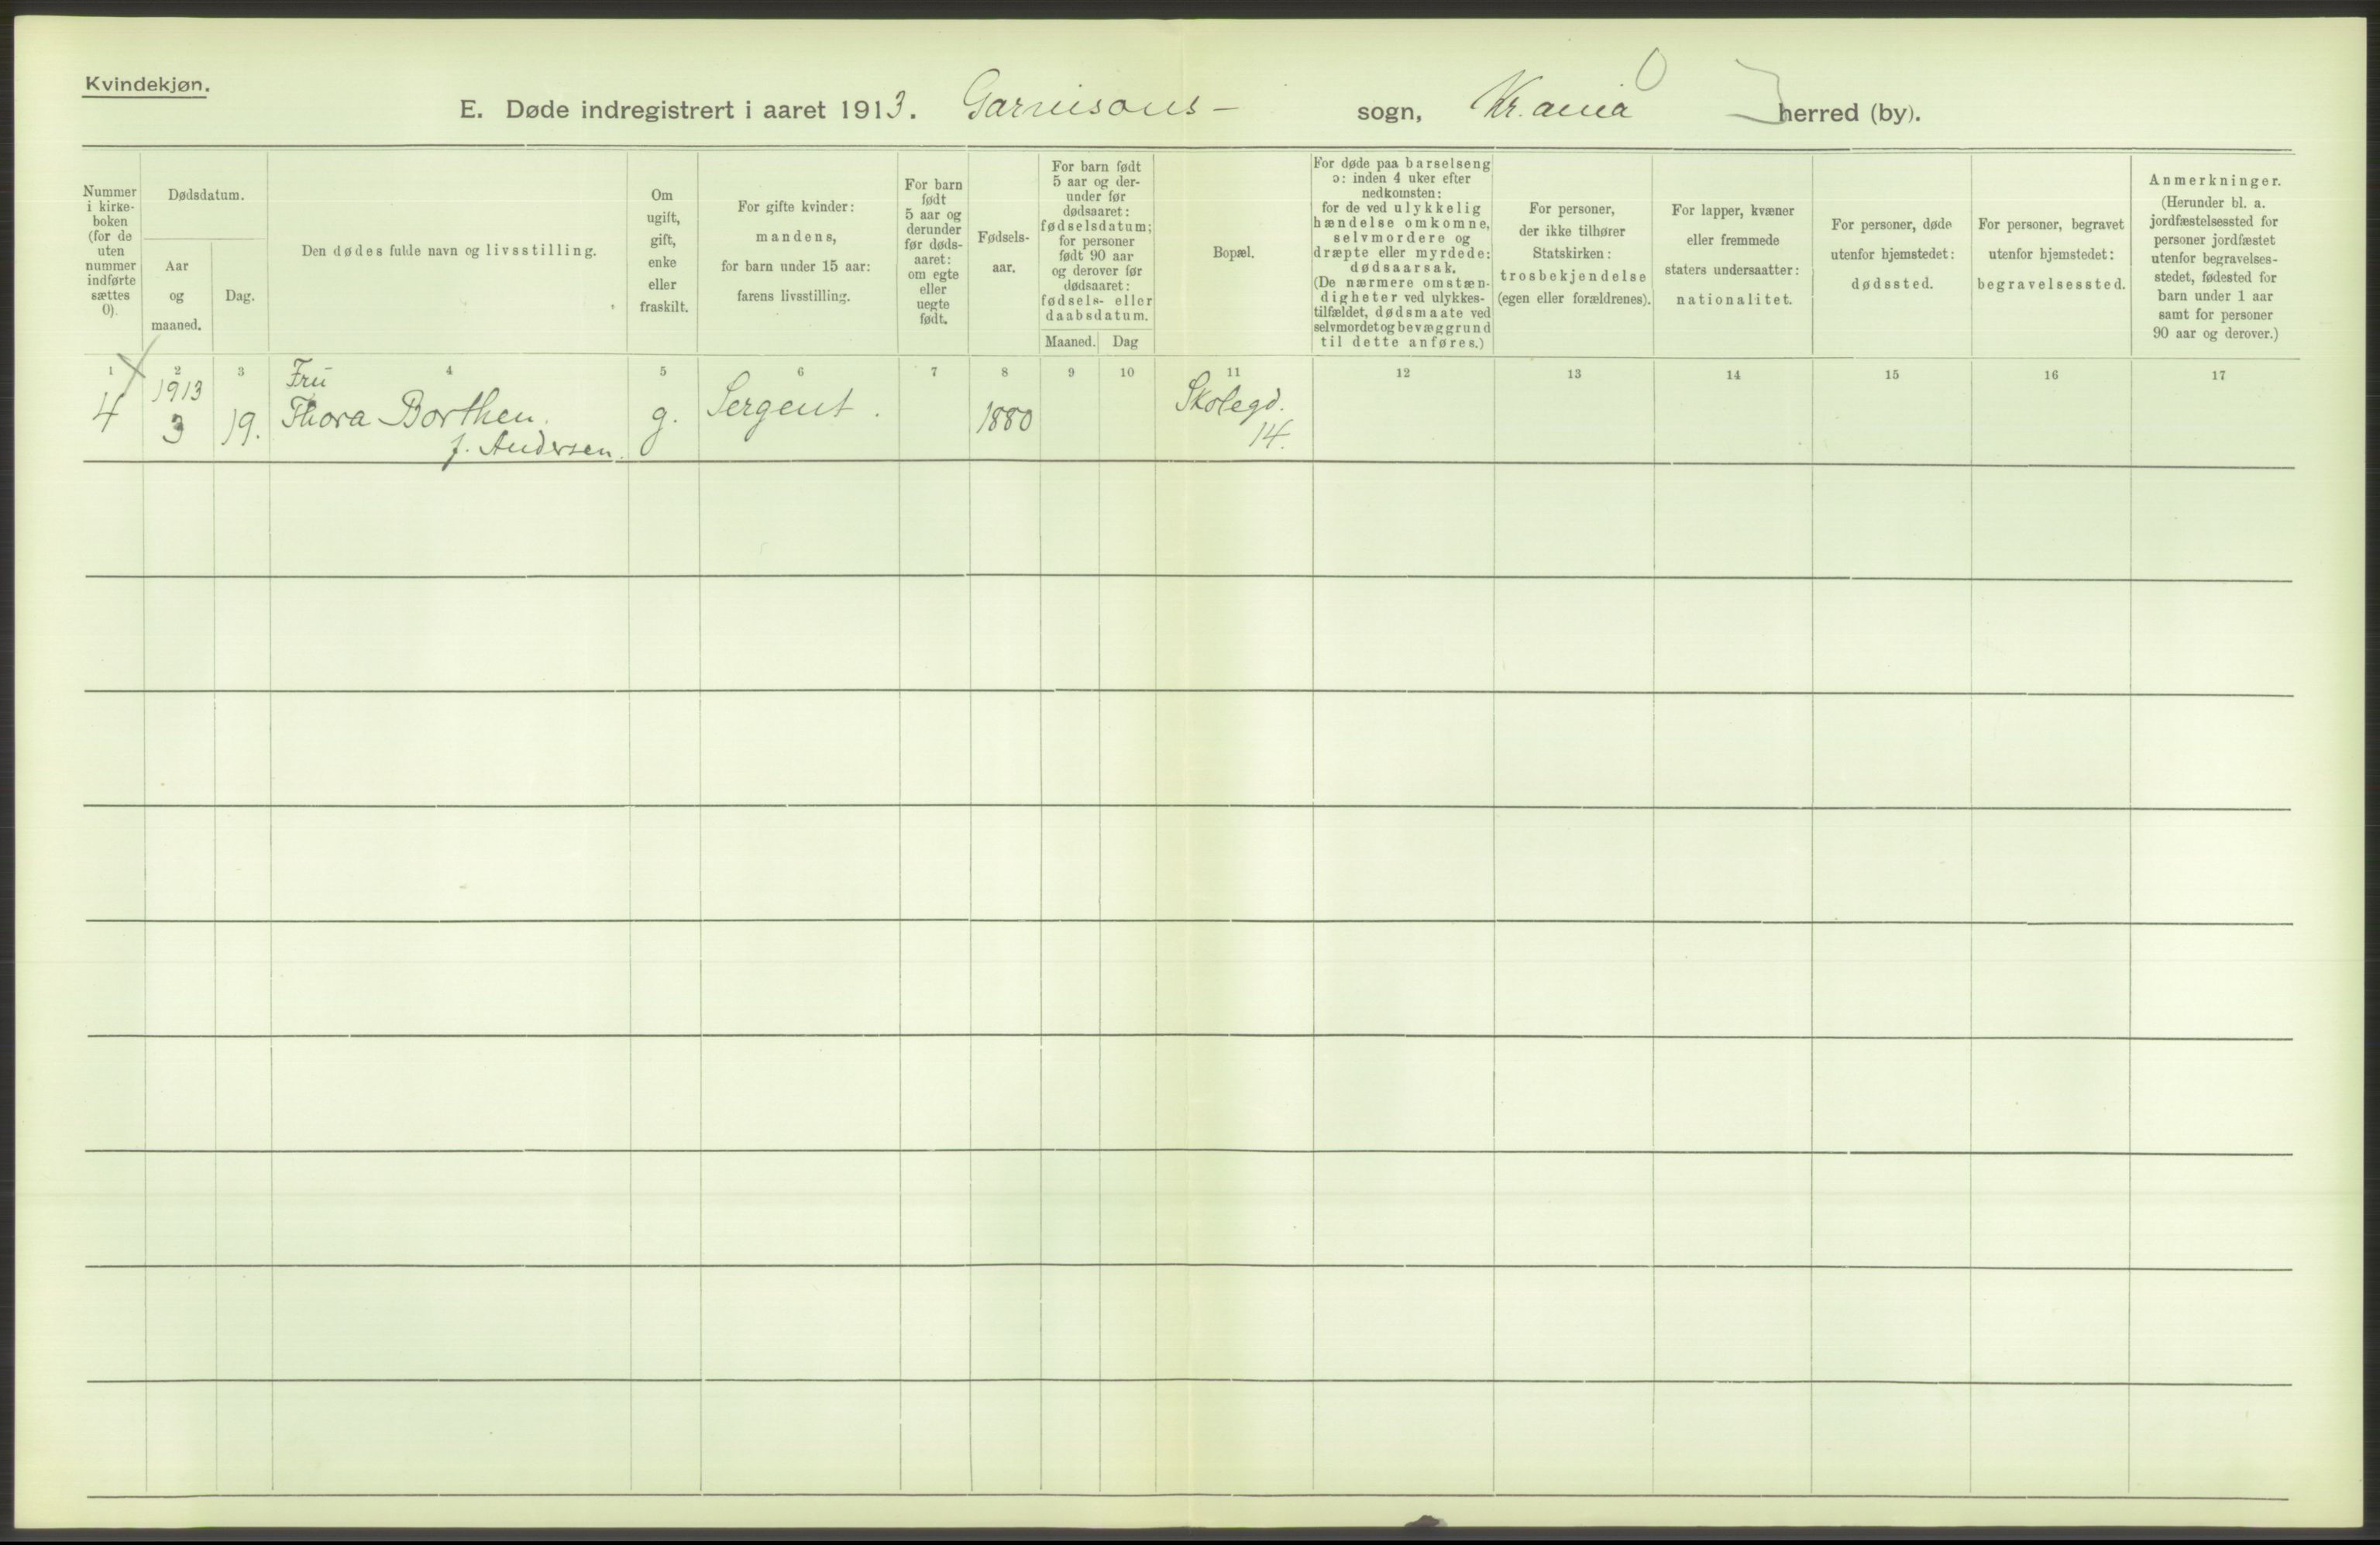 Kvindekjøn.
E. Døde indregistrert i aaret 1913. Garnisons- sogn, Kr.ania herred (by).
Nummer
i kirke-
boken
(for de
uten
nummer
indførte
sættes
0).
Dødsdatum.
Aar
og
maaned.
Dag.
Den dødes fulde navn og livsstilling.
Om
ugift,
gift,
enke
eller
fraskilt.
For gifte kvinder:
mandens,
for barn under 15 aar:
farens livsstilling.
For barn
født
5 aar og
derunder
før døds-
aaret:
om egte
eller
uegte
født.
Fødsels-
aar.
For barn født
5 aar og der-
under før
dødsaaret:
fødselsdatum;
for personer
født 90 aar
og derover før
dødsaaret:
fødsels- eller
daabsdatum.
Maaned. Dag
Bopæl.
For døde paa barselseng
ɔ: inden 4 uker efter
nedkomsten:
for de ved ulykkelig
hændelse omkomne,
selvmordere og
dræpte eller myrdede:
dødsaarsak.
(De nærmere omstæn-
digheter ved ulykkes-
tilfældet, dødsmaate ved
selvmordet og bevæggrund
til dette anføres.)
For personer,
der ikke tilhører
Statskirken:
trosbekjendelse
(egen eller forældrenes).
For lapper, kvæner
eller fremmede
staters undersaatter:
nationalitet.
For personer, døde
utenfor hjemstedet:
dødssted.
For personer, begravet
utenfor hjemstedet:
begravelsessted.
Anmerkninger.
(Herunder bl. a.
jordfæstelsessted for
personer jordfæstet
utenfor begravelses-
stedet, fødested for
barn under 1 aar
samt for personer
90 aar og derover.)
1 2 3 4 5 6 7 8 9 10 11 12 13 14 15 16 17
4
1913
3
19.
Fru
Thora Borthen.
f. Andersen.
g.
Sergent.
1880
Skolegd.
14.